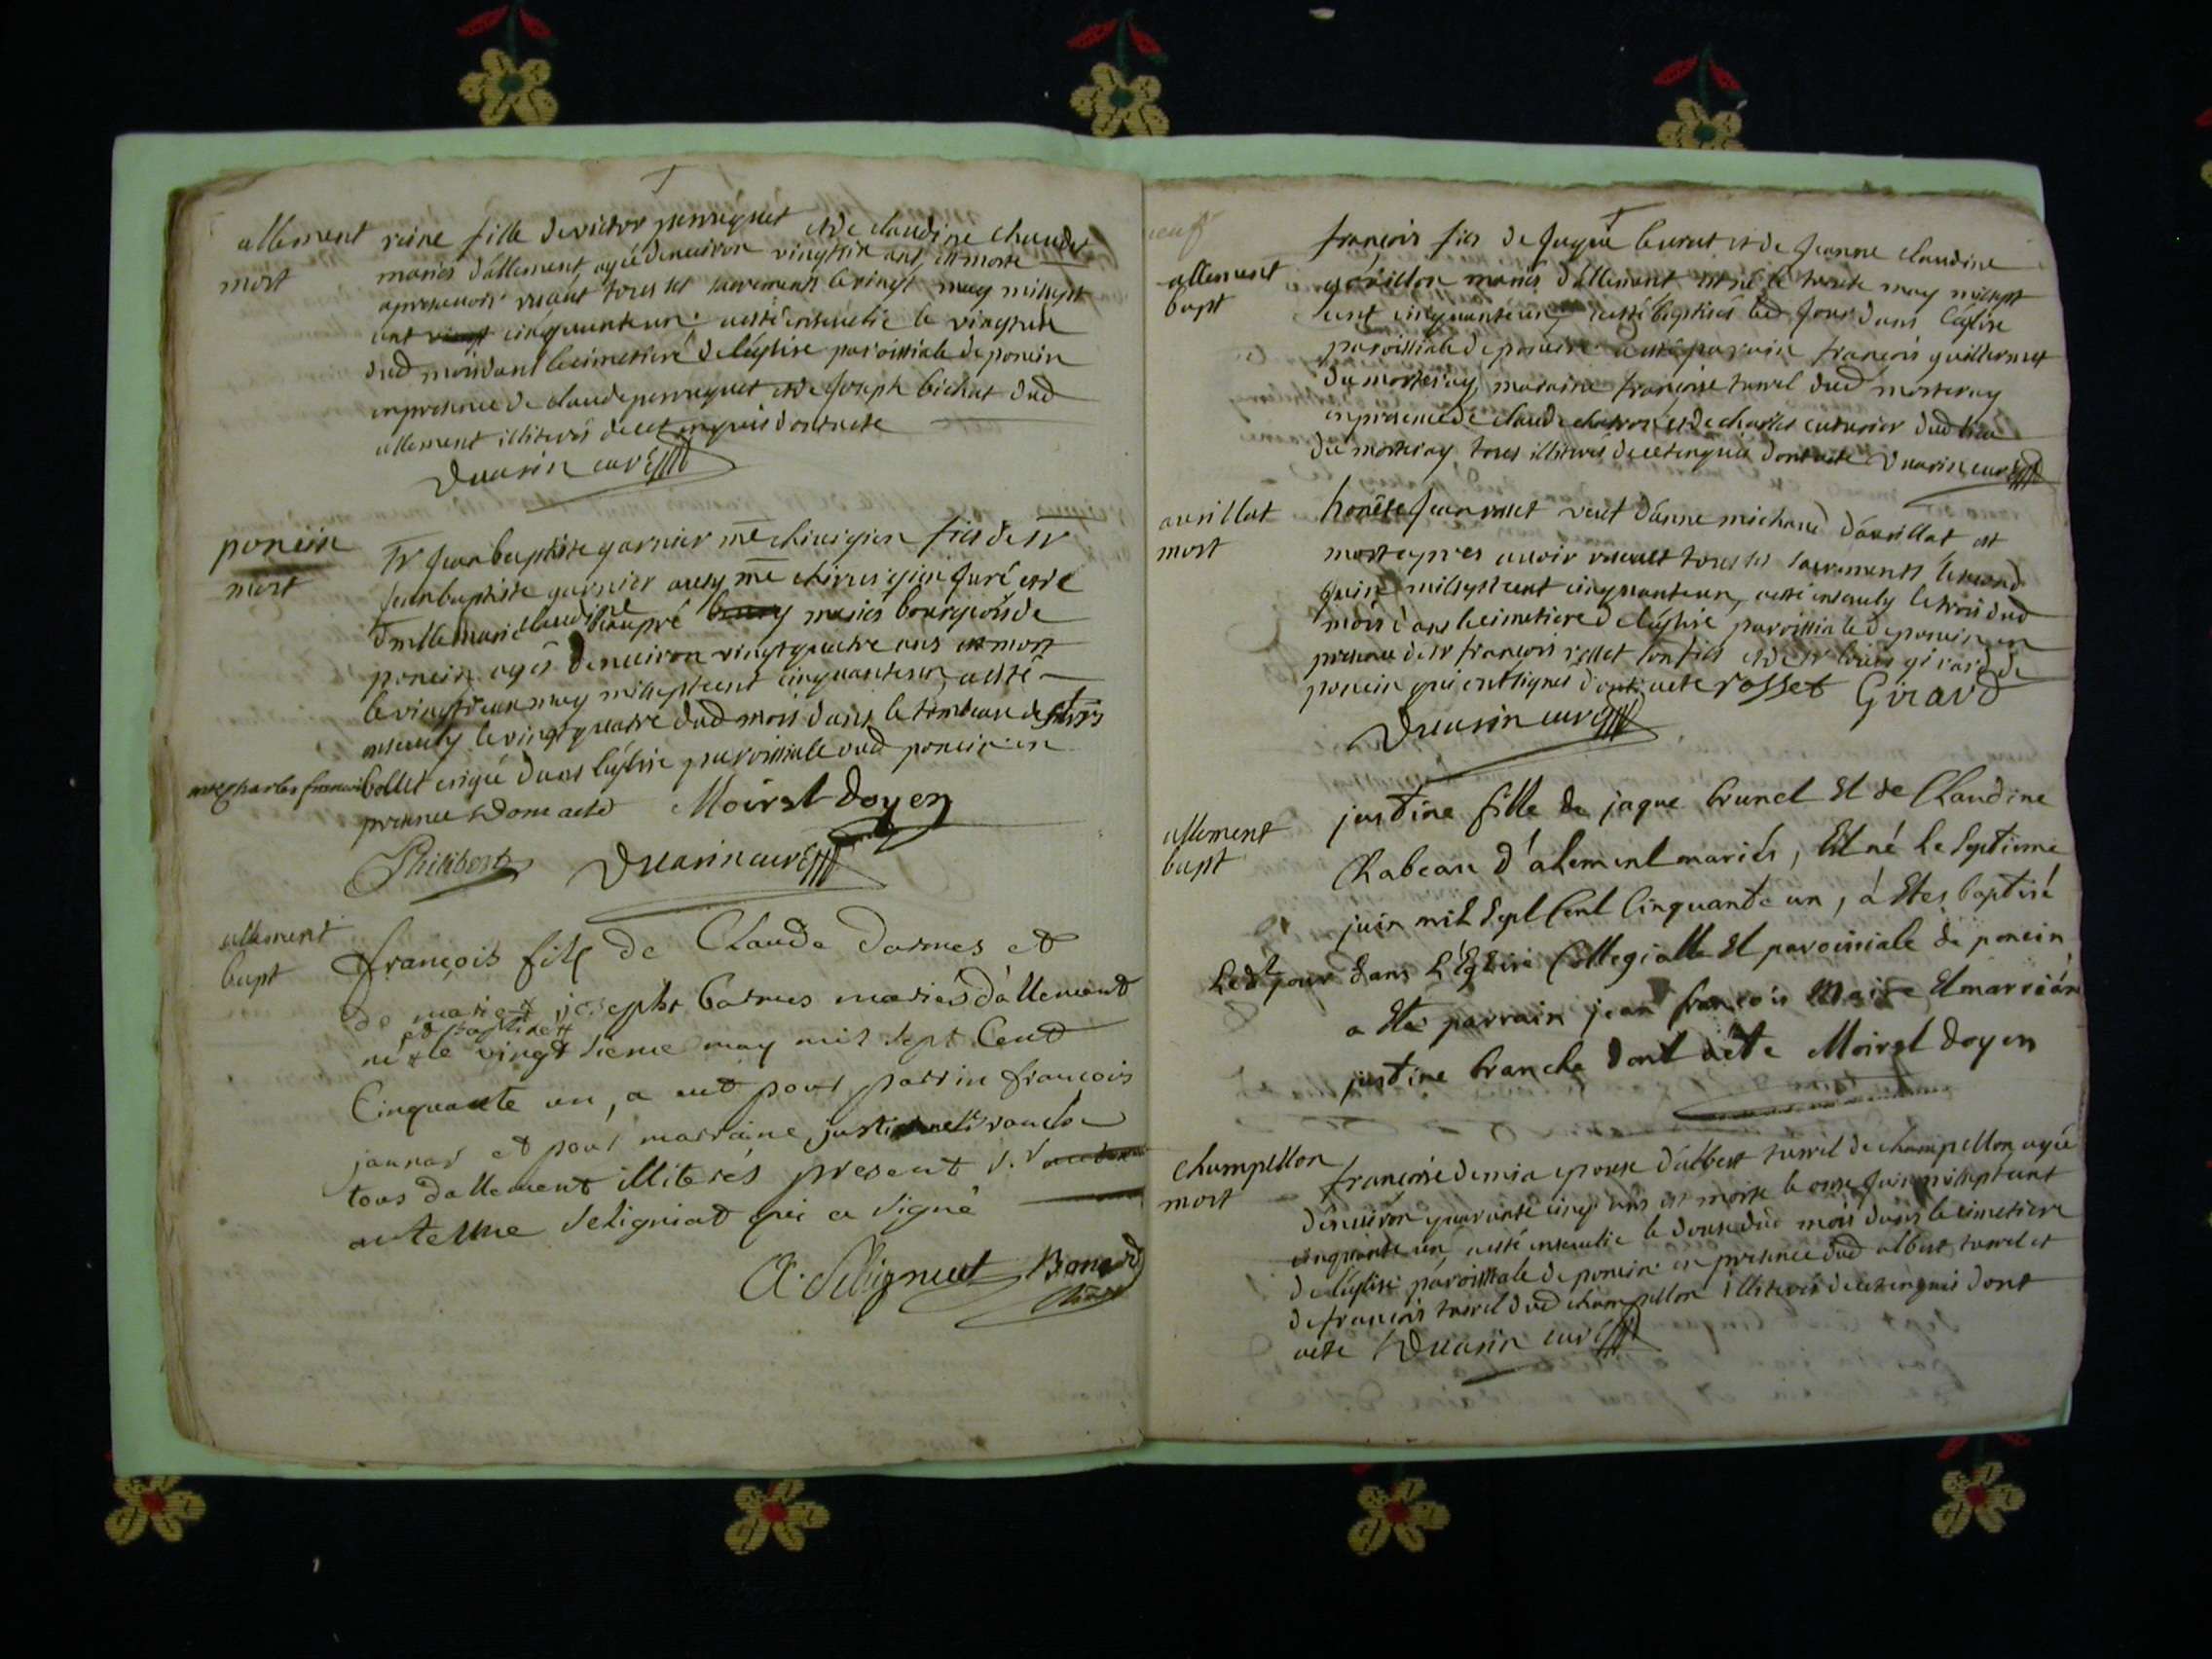 allement
mort
reine fille de victor perruquet et de claudine chaudet
mariés d'allement, agée denuiron vingt six ans, est morte
apres auoir receut tous ses sacrements le vingt may mil sept
cent cinquante un. a esté enseuelie le vingt un
dud mois dans le cimetiere de l'église paroissiale de poncin
en presence de claude perruquet et de joseph bichat dud
allement illiterés de ce enquis dont acte
Duarin curé
poncin
mort
Sr jean baptiste garnier me chirurgien fils de Sr
jean baptiste garnier aussy me chirurgien juré et de
dmlle marie claudine beaupré mariés bourgeois de
poncin agés denuiron vingt quatre ans est mort
le vingt may mil sept cent cinquante un, a esté
enseuely le vingt quatre dud mois dans le tombeau de
mre charles francois bollet erigé dans l'église paroissiale dud poncin en
presence dont acte Moiret doyen
Philibert Duarin curé
allement
bapt
françois fils de Claude darmes et
de marie josephe mariés d'allement
né et baptisé le vingt may mil sept Cent
Cinquante un, a eut pour parrin francois
jannas et pour marraine justine branche
tous dallement illiterés present Sr
antelme Selignat qui a signé
A. Selignat
allement
bapt
françois fils de jaque et de jeanne claudine
mariés d'allement est né le trente may mil sept
cent cinquante un, a esté baptisé led jour dans l'église
paroissiale de poncin a esté parain françois guillermet
du morteray, maraine françoise tarrel dud morteray
en presence de claude et de charles couturier dud lieu
du morteray tous illiterés de ce enquis dont acte Duarin curé
aurillat
mort
honête jean rosset veuf d'anne michaud d'aurillat est
mort apres auoir receut tous ses sacrements le second
juin mil sept cent cinquante un, a esté enseuely le trois dud
mois dans le cimetiere de l'église paroissiale de poncin en
presence de Sr françois rosset son fils et de Sr louis girard de
poncin qui ont signés dont acte rosset Girard
Duarin curé
allement
bapt
justine fille de jaque brunet Et de Claudine
Chabeau d'alement mariés, Est né le septieme
juin mil sept Cent Cinquante un, á Etes baptisé
Ledt jour dans L'Eglise Collegialle Et paroissiale de poncin
a Ete parrain jean françois Et marrain
justine branche dont acte Moiret doyen
champellon
mort
françoise demia epouse d'albert tarrel de champellon agée
denuiron quarante cinq ans est morte le onze juin mil sept cent
cinquante un, a esté enseuelie le douze dud mois dans le cimetiere
de l'église paroissiale de poncin en presence dud albert tarrel et
de françois tarrel dud champellon illiterés de ce enquis dont
acte Duarin curé